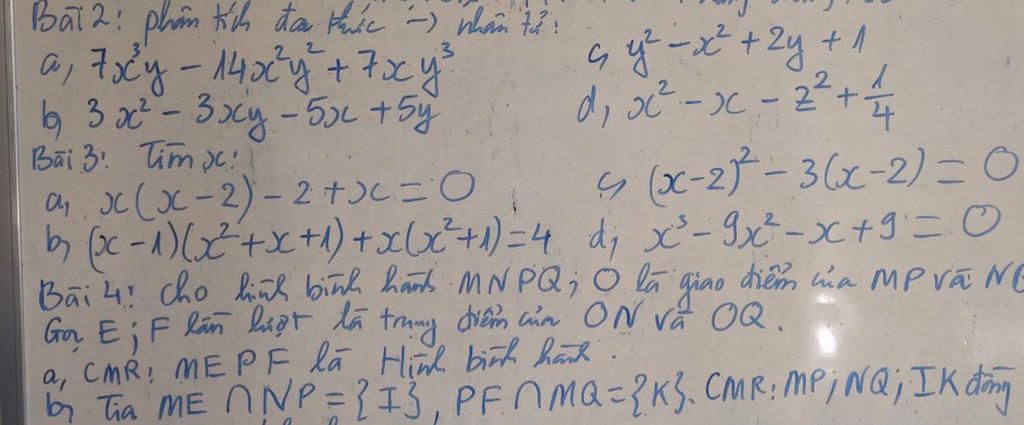 Bài 2: phân tích đa thức → nhân tử:
a, 7x³y - 14x²y² + 7xy³
c, y² - x² + 2y + 1
b, 3x² - 3xy - 5x + 5y
d, x² - x - z² + 1/4
Bài 3: Tìm x:
a, x(x-2) - 2 + x = 0
c, (x-2)² - 3(x-2) = 0
b, (x-1)(x²+x+1) + x(x²+1) = 4
d, x³ - 9x² - x + 9 = 0
Bài 4: Cho hình bình hành MNPQ; O là giao điểm của MP và
Gọi E; F lần lượt là trung điểm của ON và OQ.
a, CMR: MEPF là Hình bình hành.
b, Tia ME ∩ NP = {I}, PF ∩ MQ = {K}. CMR: MP; NQ; IK đồng